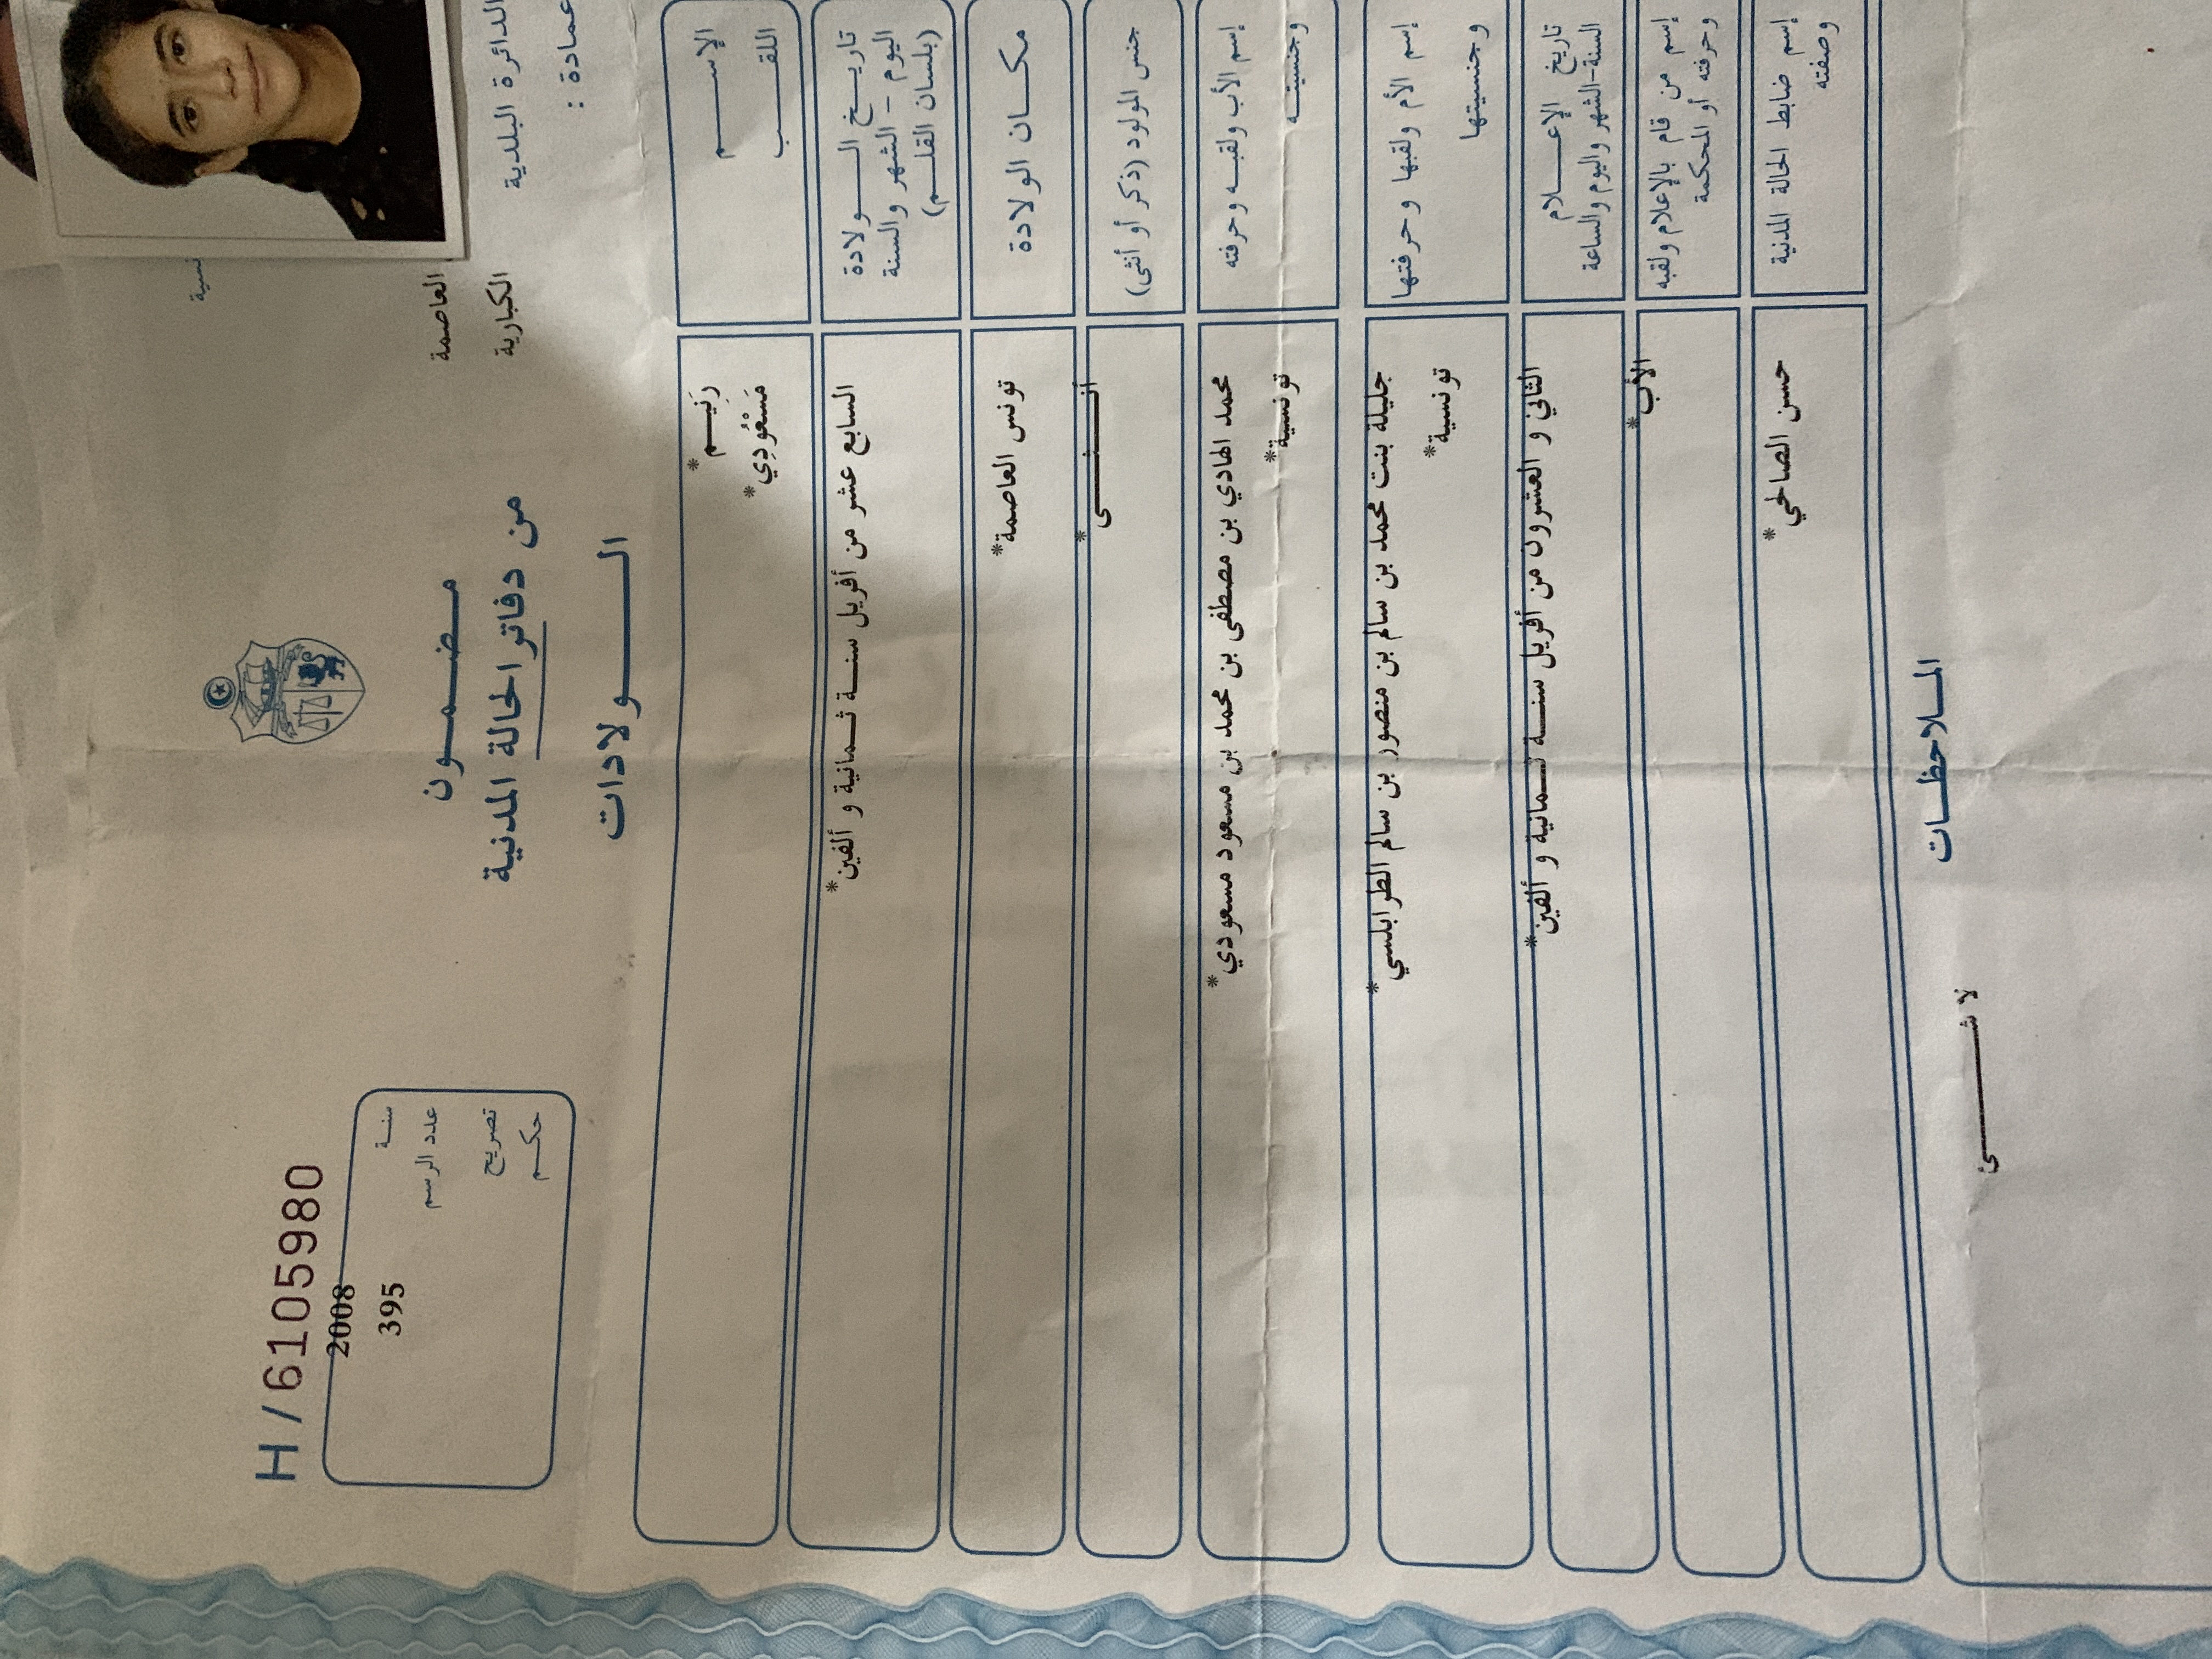 H/6105980
سنة 2008
عدد الرسم 395
تصريح
حكم
العاصمة
الدائرة البلدية الكبارية
عمادة :
مضمون
من دفاتر الحالة المدنية
الولادات
الإسم رَنِيم*
اللقب مَسْعُودِي*
تاريخ الولادة
اليوم - الشهر والسنة
(بلسان القلم)
السابع عشر من أفريل سنة ثمانية و ألفين*
مكان الولادة تونس العاصمة*
جنس المولود (ذكر أو أنثى) أنثى*
إسم الأب ولقبه وحرفته محمد الهادي بن مصطفى بن محمد بن مسعود مسعودي*
وجنسيته تونسية*
إسم الأم ولقبها وحرفتها جليلة بنت محمد بن سالم بن منصور بن سالم الطرابلسي*
وجنسيتها تونسية*
تاريخ الإعلام
السنة-الشهر واليوم والساعة
الثاني و العشرون من أفريل سنة ثمانية و ألفين*
إسم من قام بالإعلام ولقبه
وحرفته أو المحكمة
الأب*
إسم ضابط الحالة المدنية
وصفته
حسن الصالحي*
الملاحظات
لا شئ